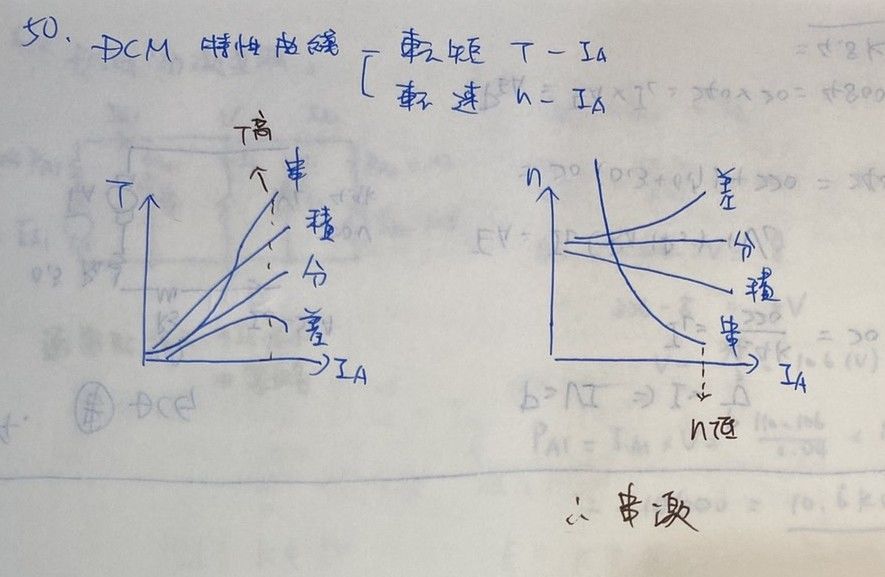 50. DCM 特性曲線 転矩 T - IA
転速 n - IA
T高
T 串
積
分
差
IA
n 差
分
積
串
IA
n低
∴ 串激